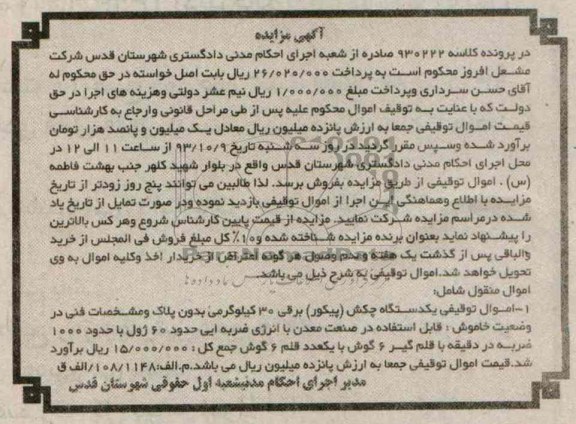 آگهی مزایده
در پرونده کلاسه ۹۳۰۲۲۲ صادره از شعبه اجرای احکام مدنی دادگستری شهرستان قدس شرکت
مشعل افروز محکوم است به پرداخت ۲۶/۰۲۰/۰۰۰ ریال بابت اصل خواسته در حق محکوم له
آقای حسن سرداری وپرداخت مبلغ ۱/۰۰۰/۰۰۰ ریال نیم عشر دولتی وهزینه های اجرا در حق
دولت که با عنایت به توقیف اموال محکوم علیه پس از طی مراحل قانونی وارجاع به کارشناسی
قیمت اموال توقیفی جمعا به ارزش پانزده میلیون ریال معادل یک میلیون و پانصد هزار تومان
برآورد شده وسپس مقرر گردید در روز سه شنبه تاریخ ۹۳/۱۰/۹ از ساعت ۱۱ الی ۱۲ در
محل اجرای احکام مدنی دادگستری شهرستان قدس واقع در بلوار شهید کلهر جنب بهشت فاطمه
(س) . اموال توقیفی از طریق مزایده بفروش برسد. لذا طالبین می توانند پنج روز زودتر از تاریخ
مزایده با اطلاع وهماهنگی این اجرا از اموال توقیفی بازدید نموده ودر صورت تمایل از تاریخ یاد
شده درمراسم مزایده شرکت نمایید. مزایده از قیمت پایین کارشناس شروع وهر کس بالاترین
را پیشنهاد نماید بعنوان برنده مزایده شناخته شده و۱۰٪ کل مبلغ فروش فی المجلس از خرید
والباقی پس از گذشت یک هفته و عدم وصول هر گونه اعتراض از خریدار اخذ وکلیه اموال به وی
تحویل خواهد شد.اموال توقیفی به شرح ذیل می باشد.
اموال منقول شامل:
۱-اموال توقیفی یکدستگاه چکش (پیکور) برقی ۳۰ کیلوگرمی بدون پلاک ومشخصات فنی در
وضعیت خاموش : قابل استفاده در صنعت معدن با انرژی ضربه ایی حدود ۶۰ ژول با حدود ۱۰۰۰
ضربه در دقیقه با قلم گیر ۶ گوش با یکعدد قلم ۶ گوش جمع کل : ۱۵/۰۰۰/۰۰۰ ریال برآورد
شد.قیمت اموال توقیفی جمعا به ارزش پانزده میلیون ریال می باشد.م.الف:۱۰۸/۱۱۴۸/الف ق
مدیر اجرای احکام مدنیشعبه اول حقوقی شهرستان قدس